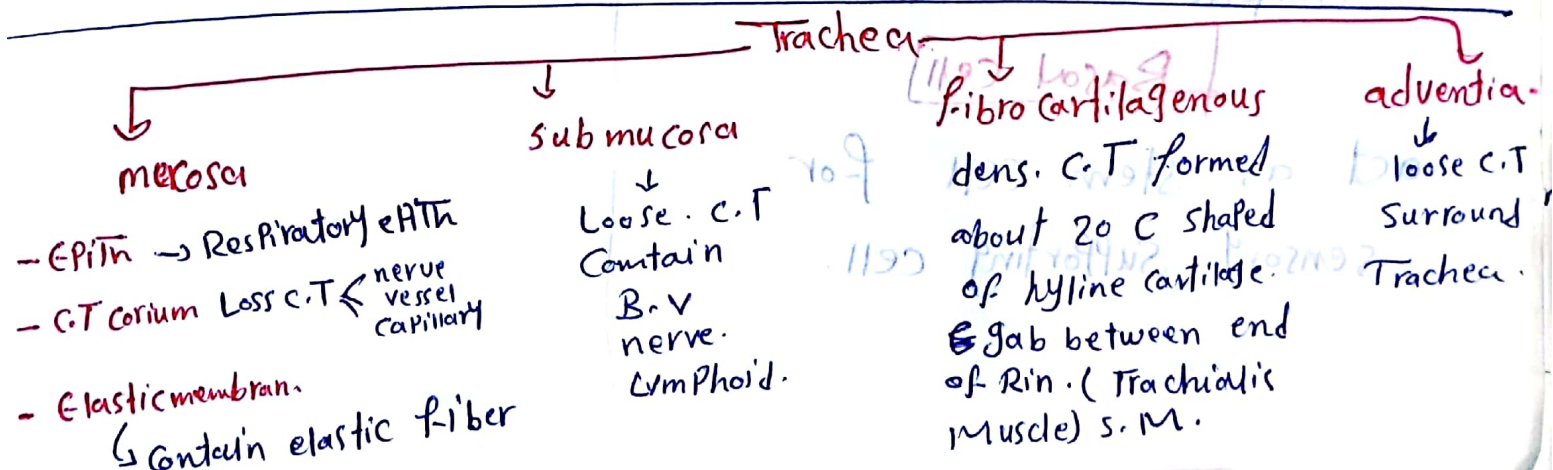 Trachea
mucosa
- Epith → Respiratory epith
- C.T corium Loss C.T < nerve
vessel
capillary
- Elastic membran.
↳ Contain elastic fiber
sub mucosa
↓
Loose . C.T
Contain
B.V
nerve.
Lymphoid.
fibro cartilagenous
dens. C.T formed
about 20 C shaped
of hyline cartilage.
gab between end
of Rin. ( Trachialis
Muscle) S.M.
adventia.
↓
loose C.T
Surround
Trachea.